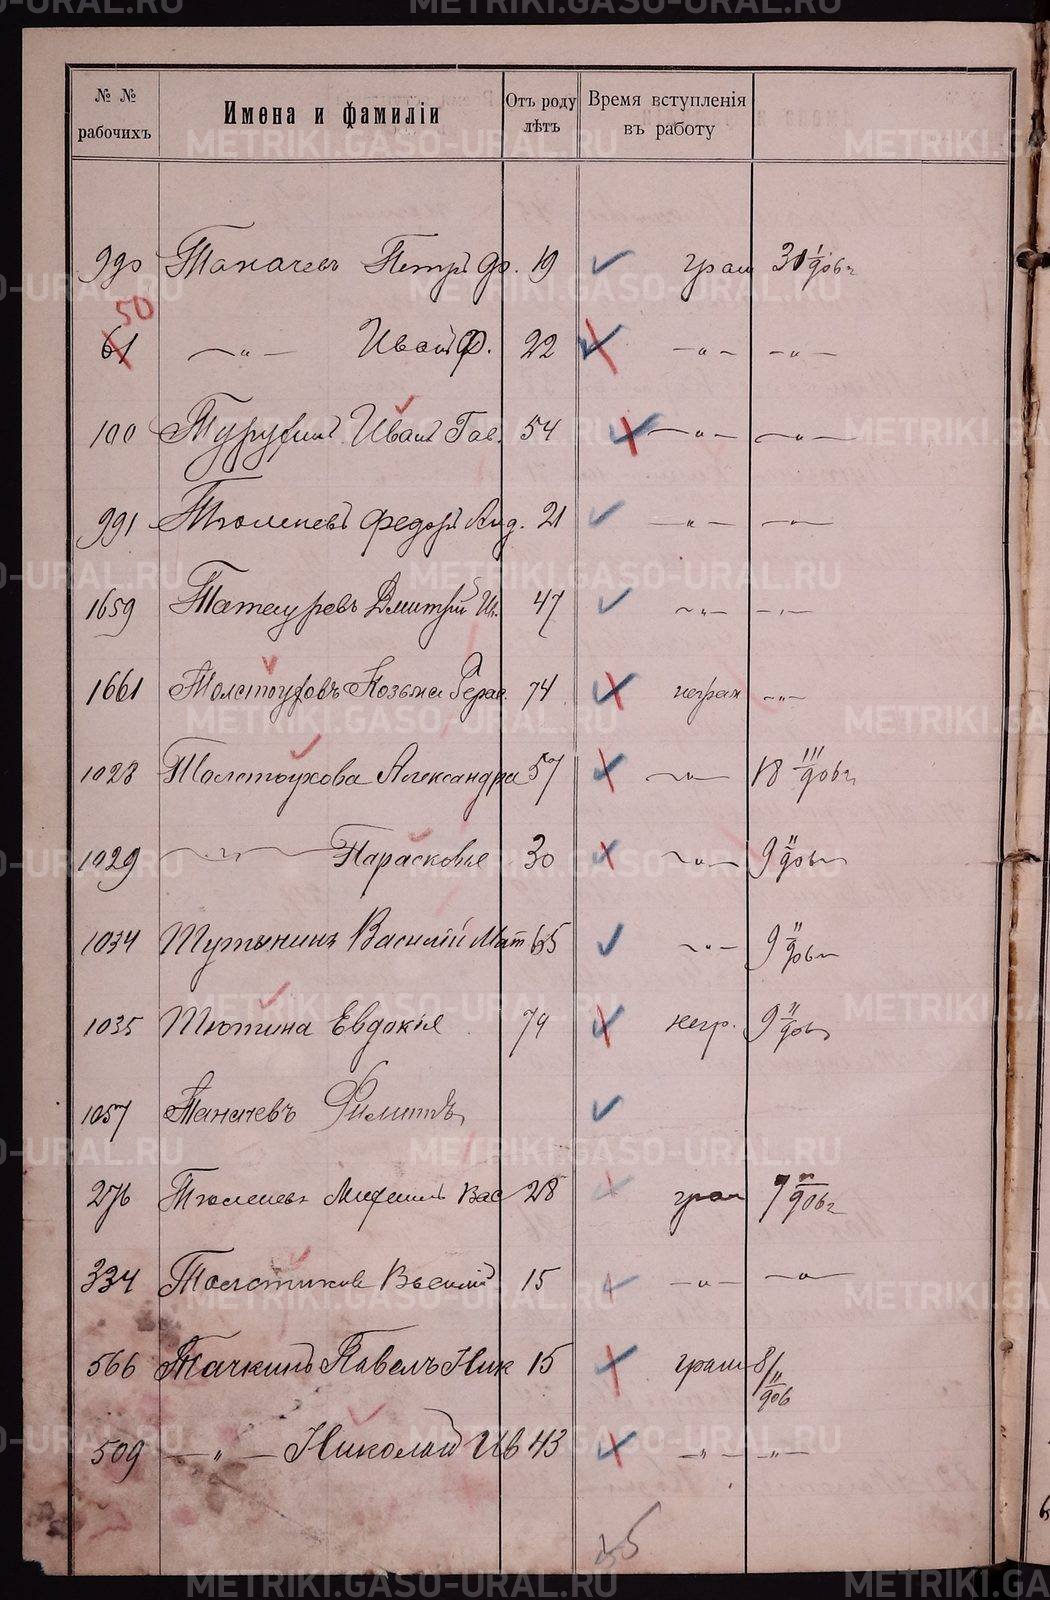 № № рабочихъ Имена и фамиліи Отъ роду лѣтъ Время вступленія въ работу
990 Таначевъ Петръ Ф. 19 грам 31 1/906 г
50
61 —„— Иванъ Ф. 22 —„— —„—
100 Иванъ Гав. 54 —„— —„—
991 Тюленевъ Федоръ Анд. 21 —„— —„—
1659 Татауровъ Дмитрій Ив. 47 —„— —„—
1661 Толстоуховъ Козьма Герас. 74 неграм —„—
1028 Толстоухова Александра 57 —„— 18 III/906 г
1029 —„— Парасковья 30 —„— 9 II/906 г
1034 Тутынинъ Василій Мат 65 —„— 9 II/906 г
1035 Тютина Евдокія 74 негр. 9 II/906 г
1057 Таначевъ Филиппъ
276 Тюленевъ Михаилъ Вас 28 грам 7 /906 г
334 Толстиков Василій 15 —„— —„—
566 Тачкинъ Павелъ Ник 15 грам 8/II 906
509 —„— Николай Ив 43 —„— —„—
35
METRIKI.GASO-URAL.RU